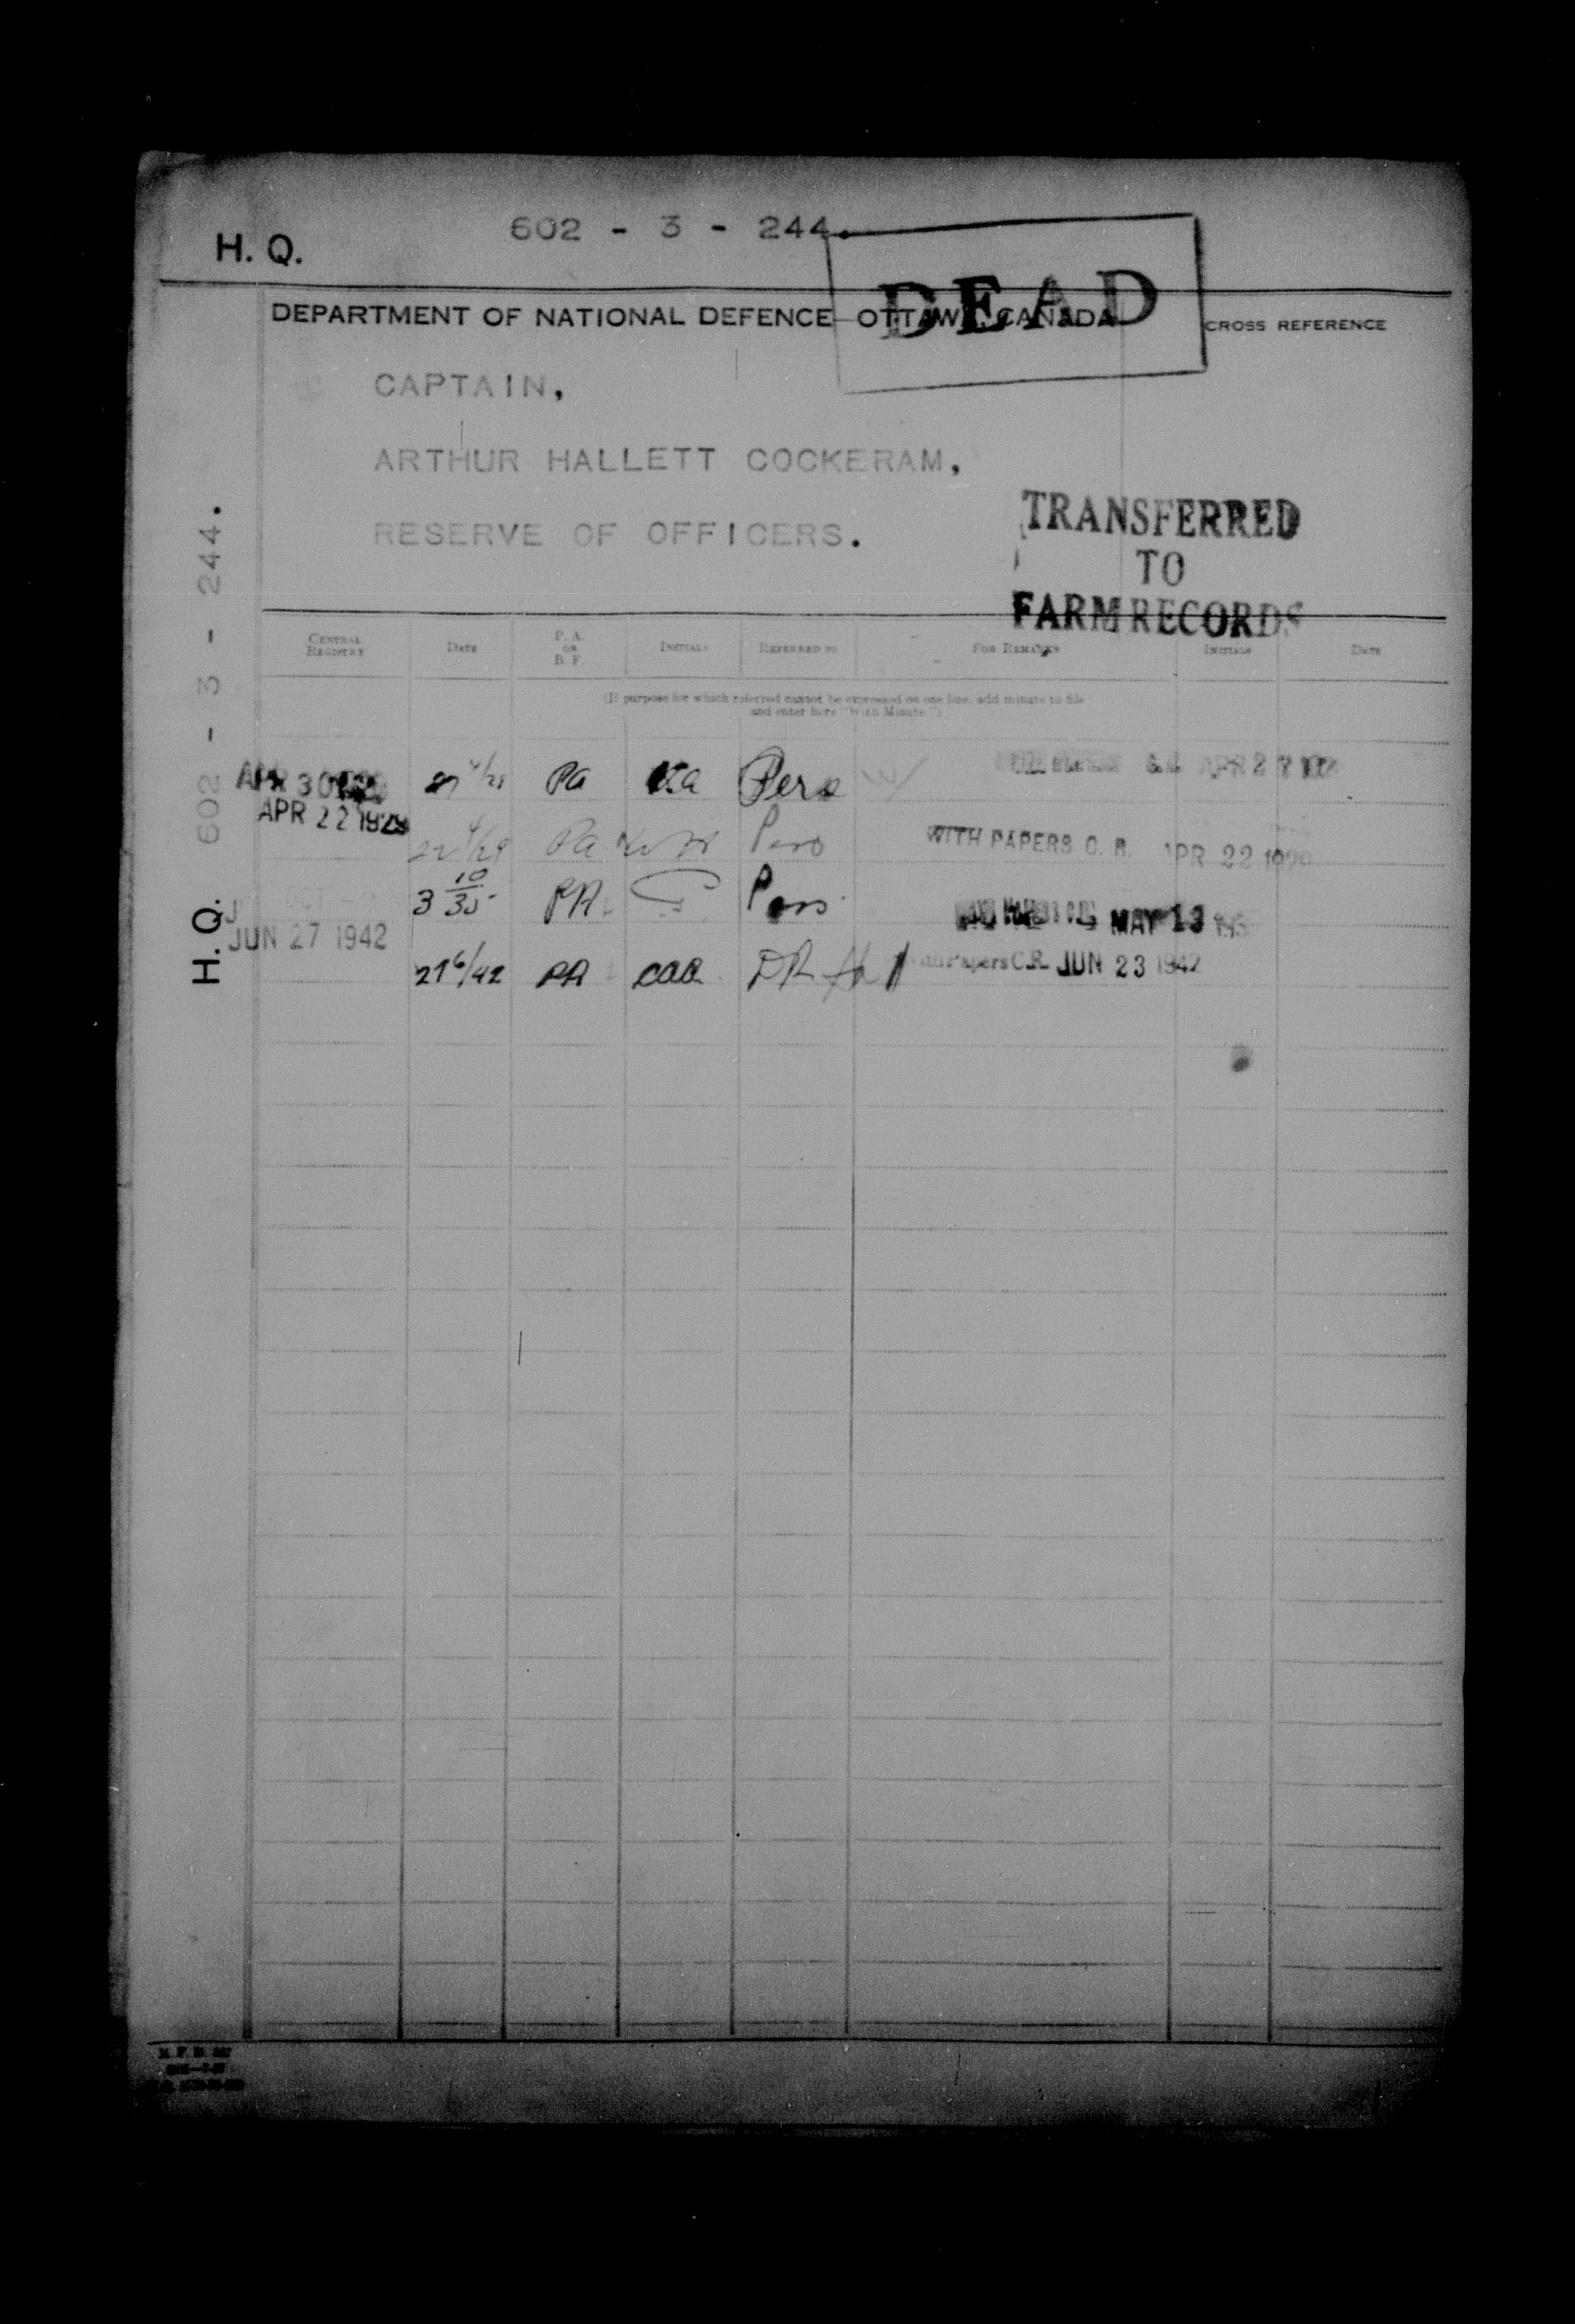 602 - 3 - 244.
H. Q.
DEAD
DEPARTMENT OF NATIONAL DEFENCE OTTAWA, CANADA
CROSS REFERENCE
CAPTAIN,
ARTHUR HALLETT COCKERAM,
RESERVE OF OFFICERS.
TRANSFERRED
TO
FARM RECORDS
H. Q. 602 - 3 - 244.
CENTRAL REGISTRY DATE P. A. OR B. F. INITIALS REFERRED TO FOR REMARKS INITIALS DATE
(If purpose for which referred cannot be expressed on one line, add minute to file
and enter here "With Minute.")
APR 30 PA Pers APR 2
APR 22 1929
22 4/29 Pa Pers WITH PAPERS C. R. APR 22
3 10/35 PA Pers MAY 13
JUN 27 1942
27 6/42 PA DR Papers C.R. JUN 23 1942